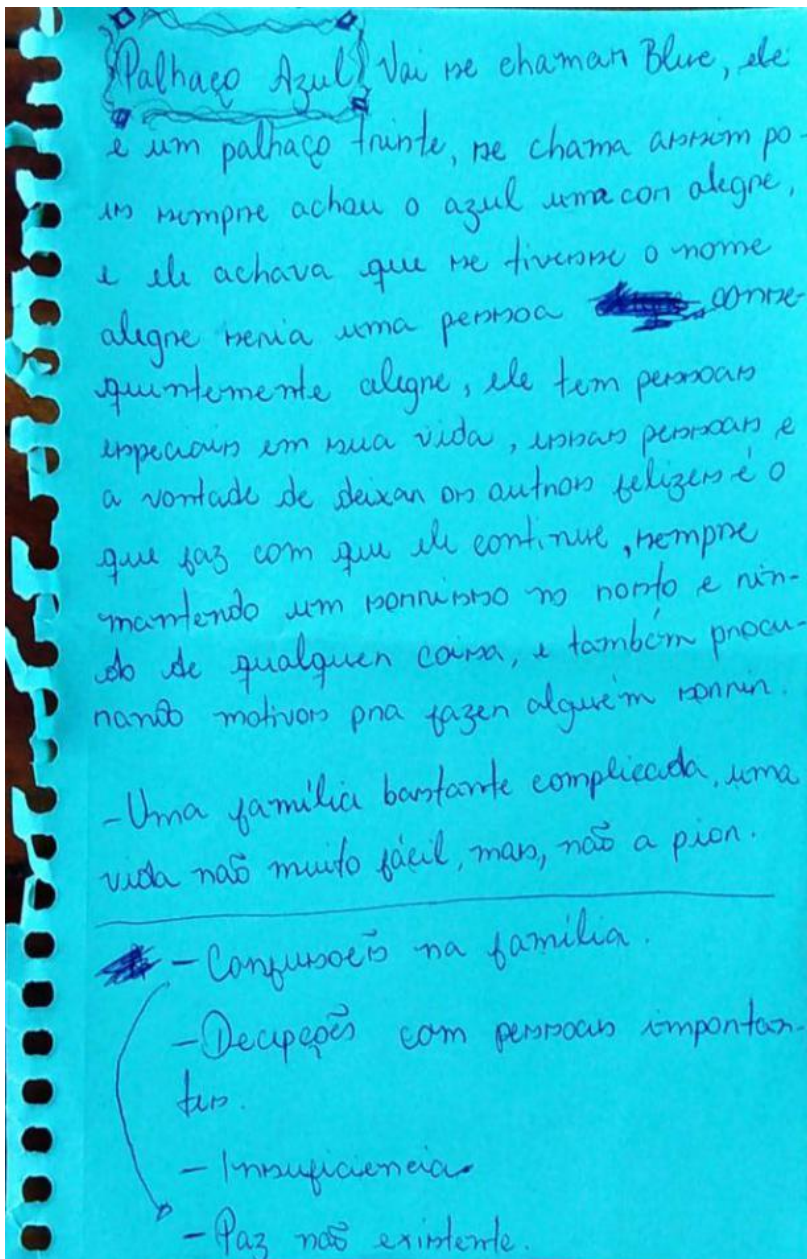 Palhaço Azul Vai se chamar Blue, ele
e um palhaço triste, se chama assim po-
is sempre achou o azul uma cor alegre,
e ele achava que se tivesse o nome
alegre seria uma pessoa conse-
quintemente alegre, ele tem pessoas
especiais em sua vida, essas pessoas e
a vontade de deixar os outros felizes é o
que faz com que ele continue, sempre
mantendo um sorrisso no rosto e rin-
do de qualquer coisa, e também procu-
rando motivos pra fazer alguém sorrir.
-Uma família bastante complicada, uma
vida não muito fácil, mas, não a pior.
-Confusoẽs na família.
-Decipçoẽs com pessoas importan-
tes.
-Insuficiencia
-Paz não existente.